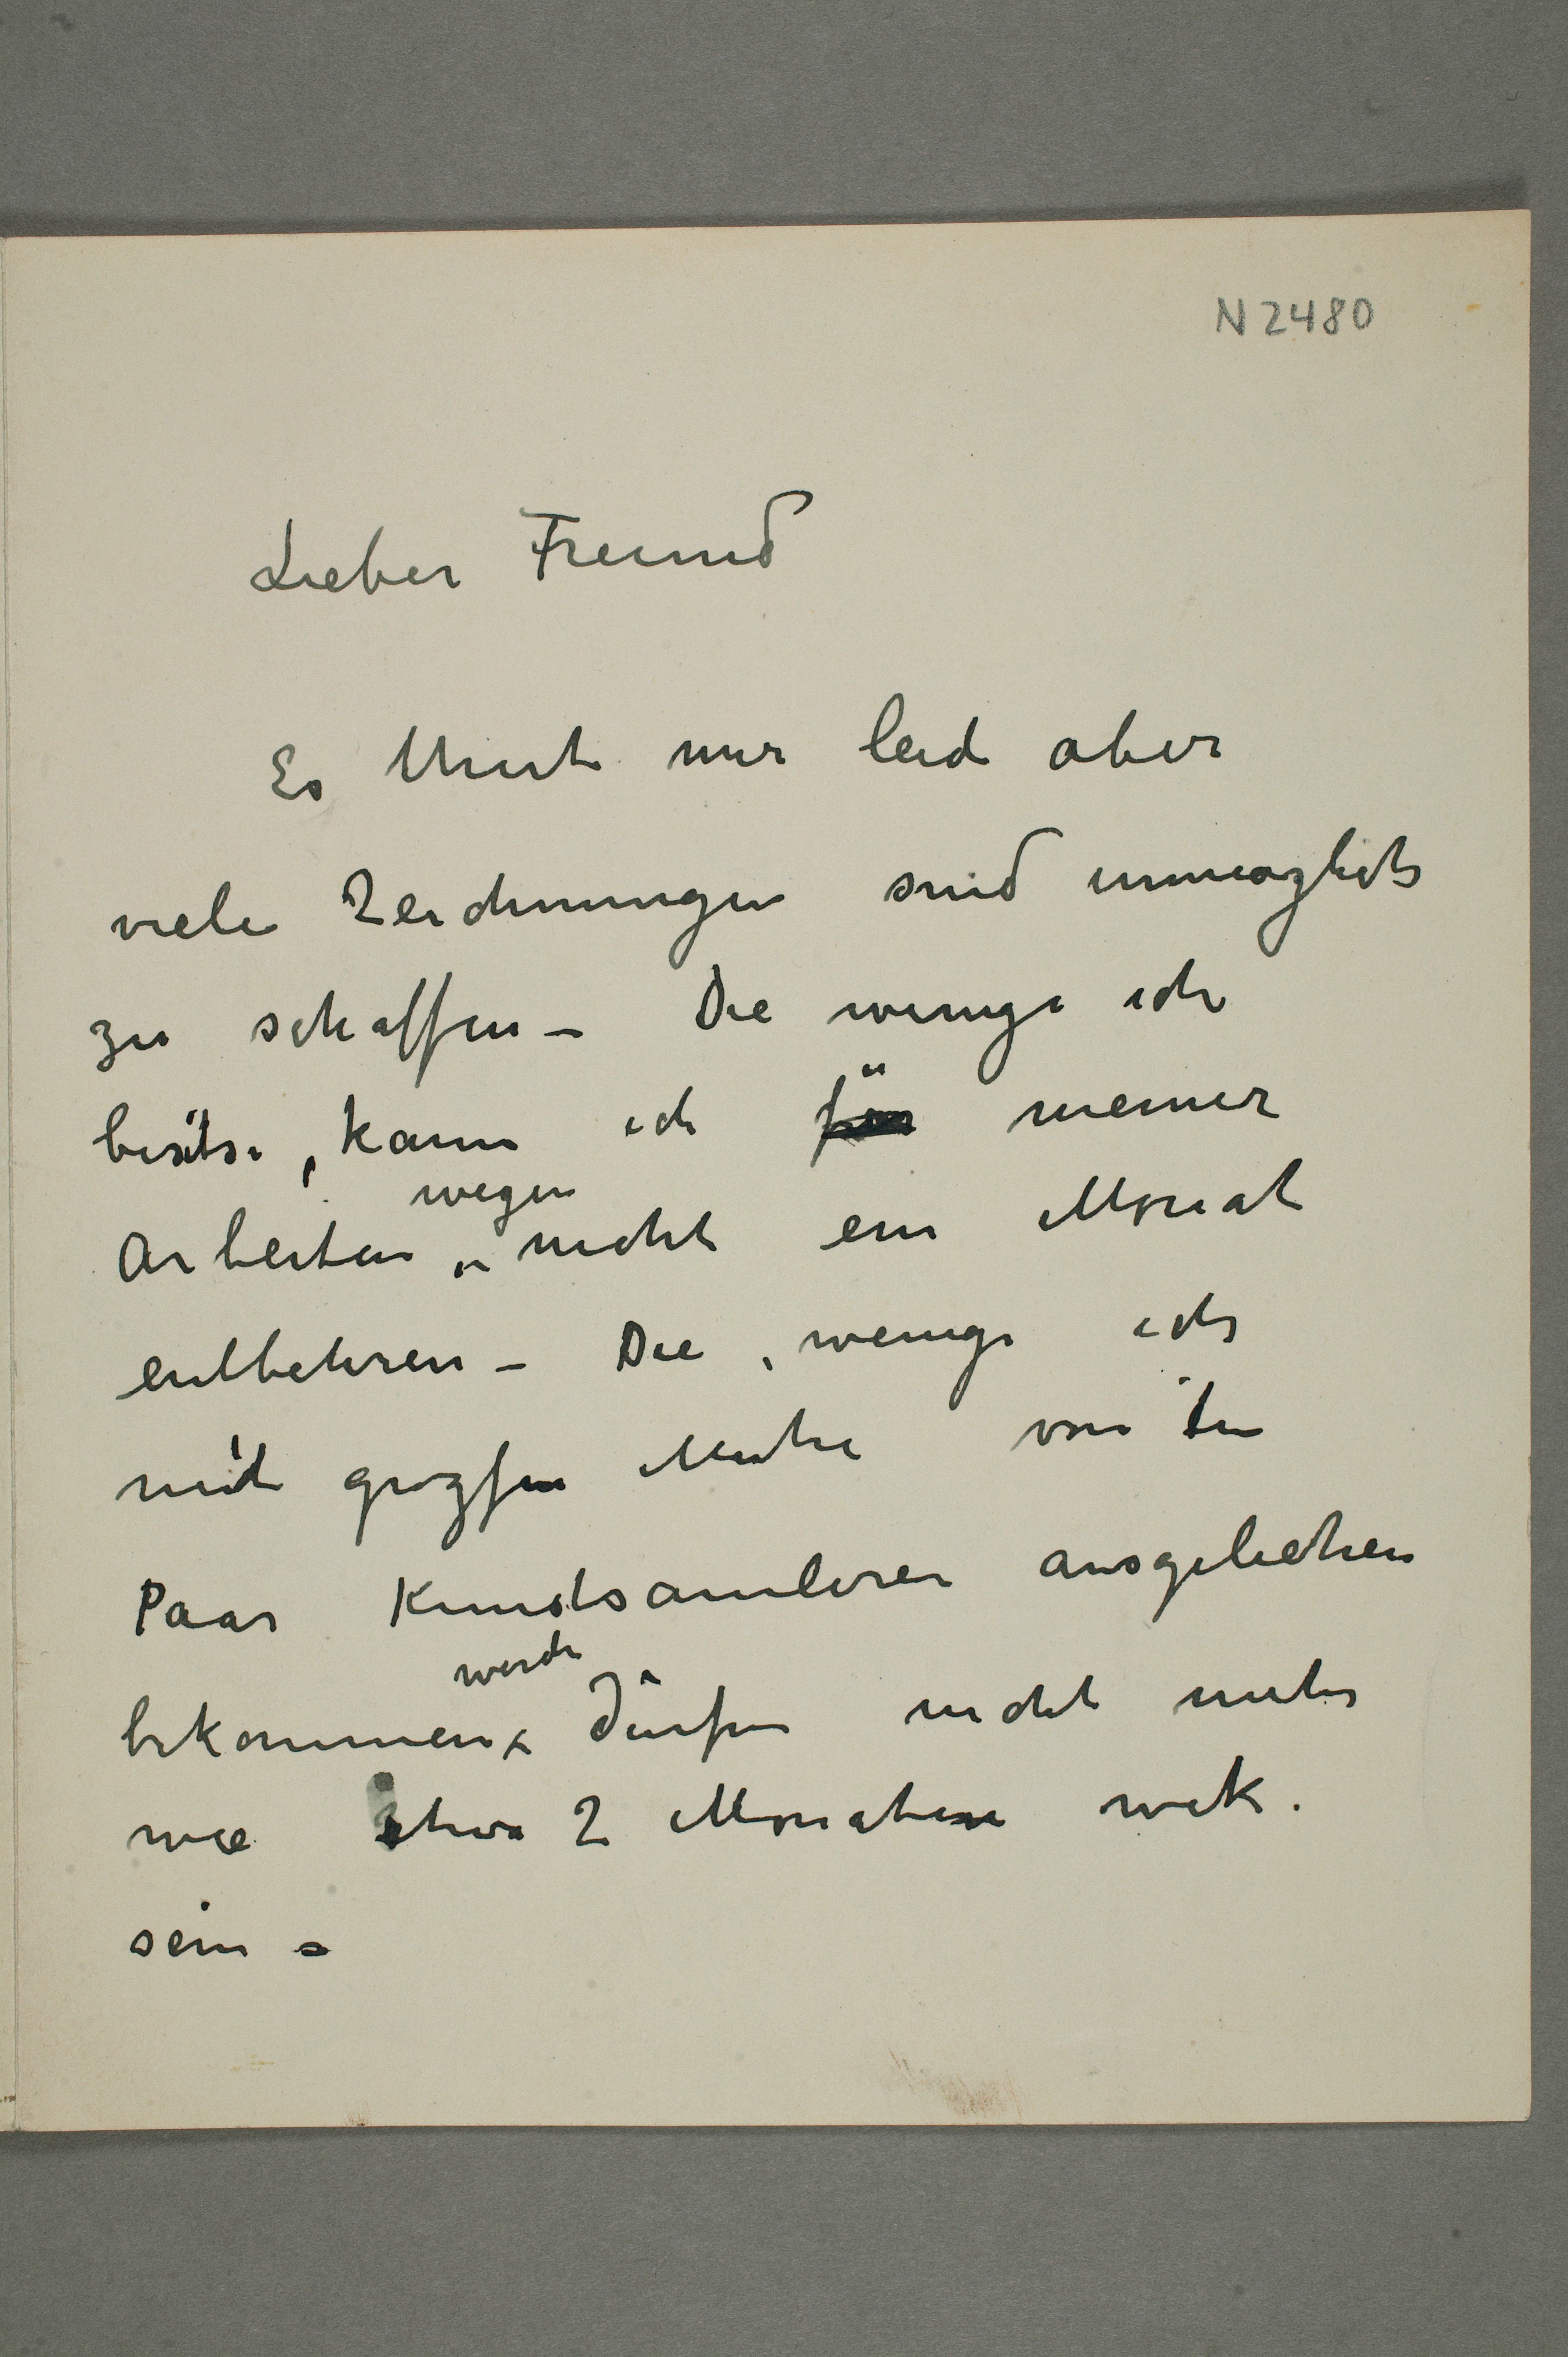 N 2480
Lieber Freund
Es thut mir leid aber
viele Zeichnungen sind unmöglich
zu schaffen – Die wenige ich
besitse, kann ich für meiner
Arbeiten wegen nicht ein Monat
entbehren – Die, wenige ich
mit grozsen Muhe von den
Paar Kunstsamlerer ausgeliehen
bekommen werde dürfen nicht mehr
wie etwa 2 Monaten wek.
sein –